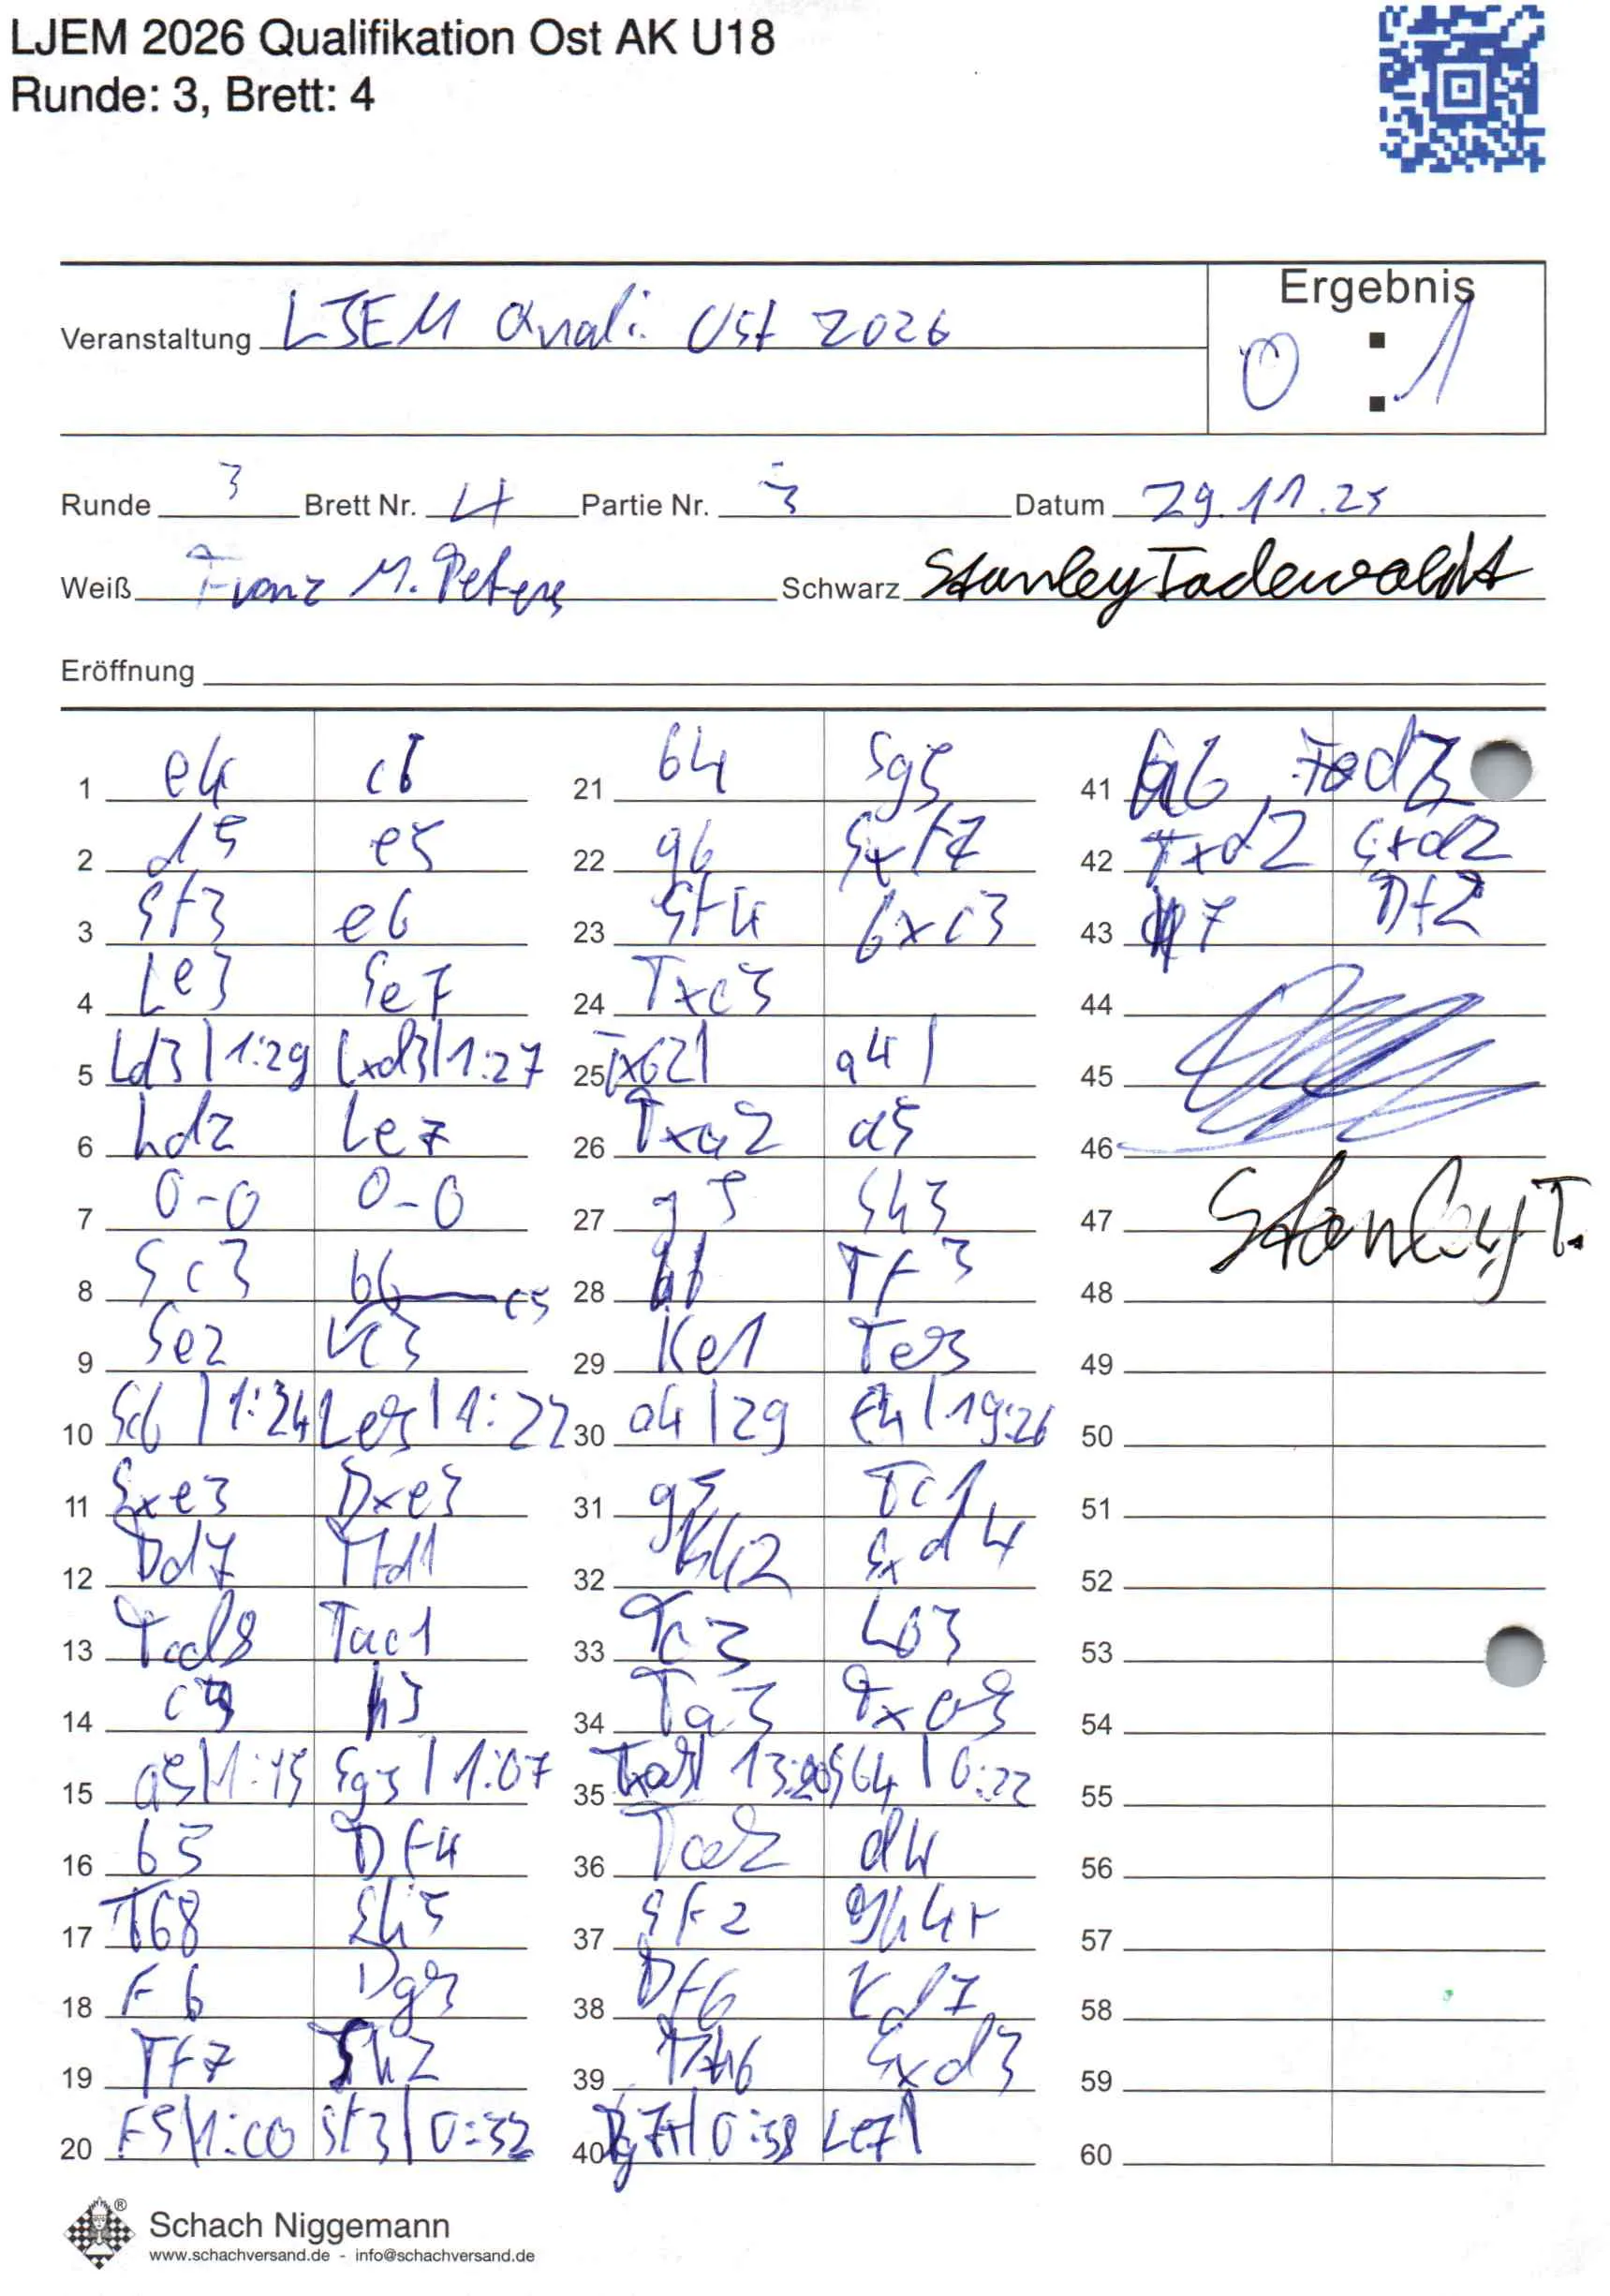 LJEM 2026 Qualifikation Ost AK U18
Runde: 3, Brett: 4
Ergebnis
Veranstaltung LJEM Quali Ost 2026
0 : 1
Runde 3 Brett Nr. 4 Partie Nr. 3 Datum 29.11.25
Weiß Franz M. Peters Schwarz Stanley Tadewaldt
Eröffnung
1 e4 c6 21 b4 Sg5 41 Tad3
2 d5 e5 22 g6 Sxf7 42 Txd2 Sxd2
3 Sf3 e6 23 Sf4 bxc3 43 Df2
4 Le3 Se7 24 Txc3 44
5 Ld3 | 1:29 Lxd3 | 1:27 25 Txb2 | a4 | 45
6 Ld2 Le7 26 Txa2 a5 46
7 0-0 0-0 27 g5 Sh3 47 Stanley T.
8 Sc3 b6 c5 28 Tf3 48
9 Se2 Lc3 29 Ke1 Te3 49
10 Sc6 | 1:24 Le3 | 1:22 30 a4 | 29 | 19:26 50
11 Sxe3 Dxe3 31 g5 Tc1 51
12 Dd7 Tfd1 32 Kh2 Sxd4 52
13 Tad8 Tac1 33 Tc3 Lb3 53
14 h3 34 Ta3 Txa3 54
15 a5 | 1:15 Sg5 | 1:07 35 Sb4 | 0:22 55
16 b5 Df4 36 Ta2 d4 56
17 Tb8 Sh5 37 Sf2 Dh4+ 57
18 F6 Dg3 38 Df6 Kd7 58
19 Tf7 Sh2 39 Th6 Sxd3 59
20 F5 | 1:00 Sf3 | 0:32 40 Dg7+ | 0:58 Le7 | 60
Schach Niggemann
www.schachversand.de - info@schachversand.de